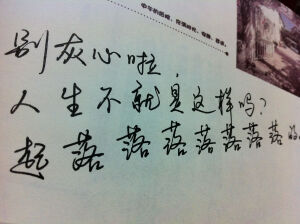 别灰心啦,
人生不就是这样吗?
起落落落落落落落的